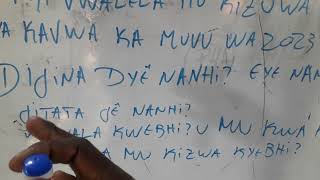 VWALELA MU KIZUWA
KAVWA KA MUVU WA 2023
DIJINA DYÊ NANHI? EYE
JITATA JÊ NANHI?
KWEBHI? U MU KWÁ
MU KIZWA KYEBHI?